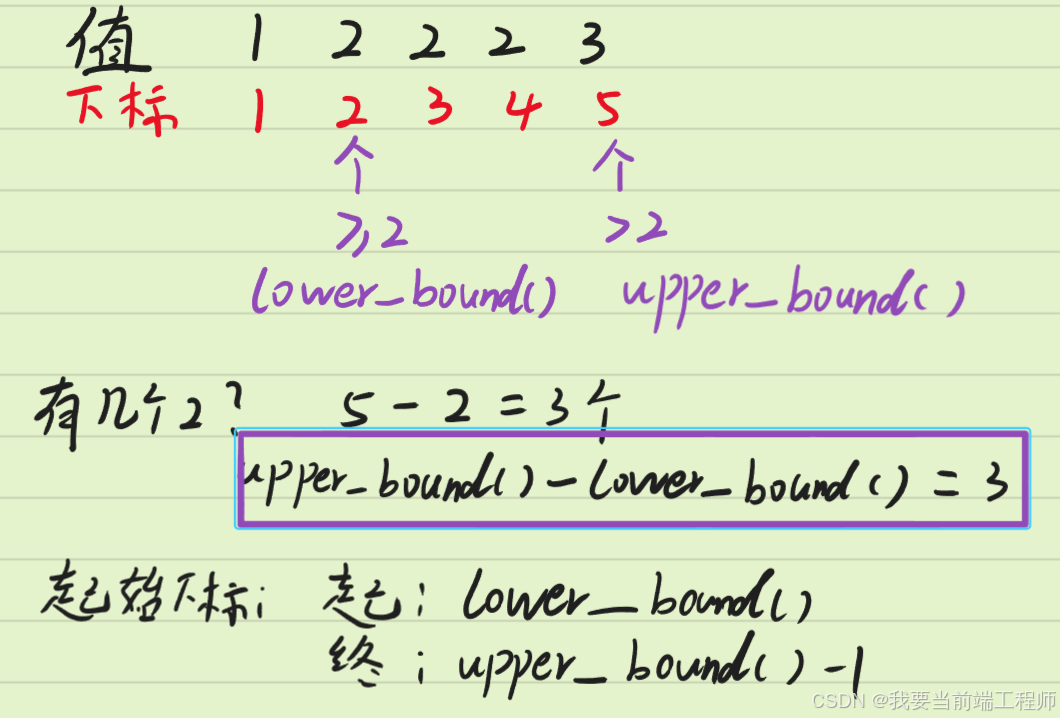 值 1 2 2 2 3
下标 1 2 3 4 5
个 个
≥2 >2
lower_bound() upper_bound()
有几个2? 5-2=3个
upper_bound()-lower_bound()=3
起始下标: 起: lower_bound()
终: upper_bound()-1
CSDN @我要当前端工程师